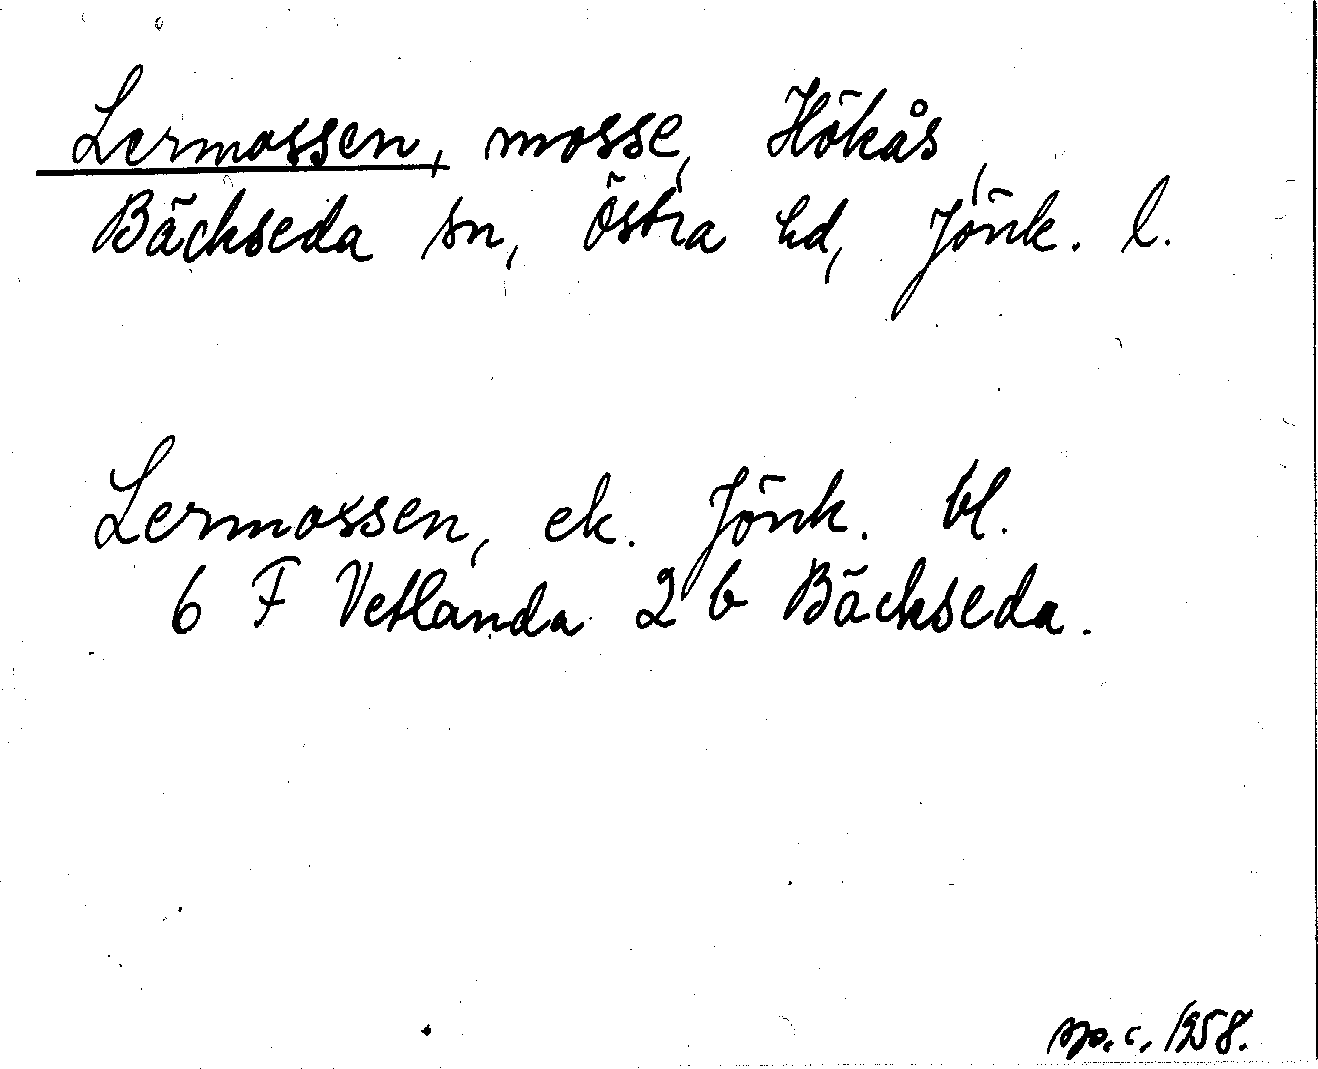 Lermossen, mosse, Hökås,
Bäckseda sn, Östra hd, Jönk. l.
Lermossen, ek. Jönk. bl.
6 F Vetlanda 2 b Bäckseda.
1958.